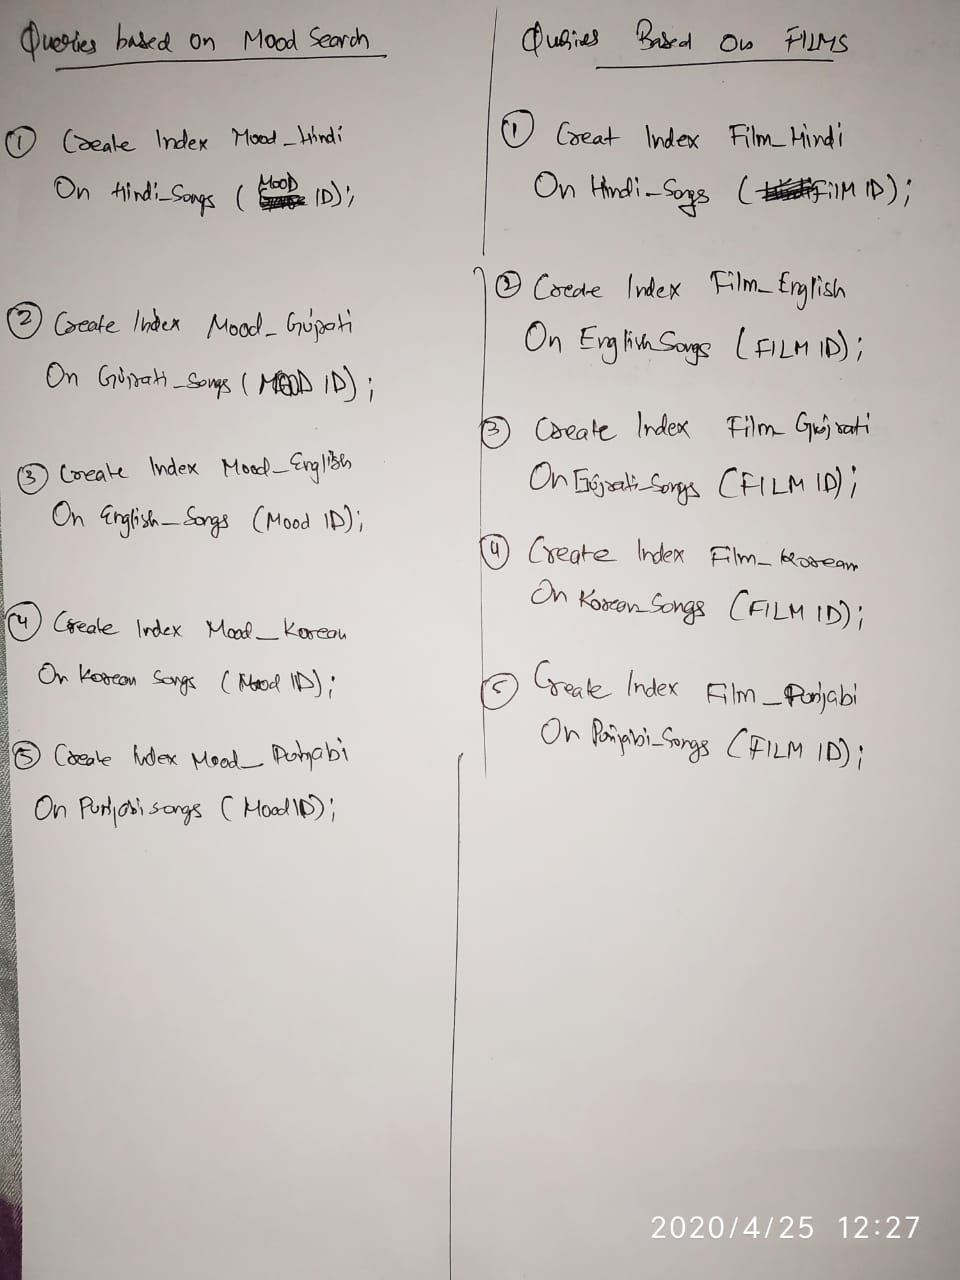 Queries based on Mood Search
① Create Index Mood_Hindi
On Hindi_Songs ( MOOD ID);
② Create Index Mood_Gujrati
On Gujrati_Songs ( MOOD ID) ;
③ Create Index Mood_English
On English_Songs (Mood ID);
④ Create Index Mood_Korean
On Korean Songs (Mood ID);
⑤ Create Index Mood_Punjabi
On Punjabi songs ( Mood ID);
Queries Based On FILMS
① Creat Index Film_Hindi
On Hindi_Songs ( FilM ID);
② Create Index Film_English
On English Songs (FILM ID);
③ Create Index Film_Gujrati
On Gujrati_Songs (FILM ID);
④ Create Index Film_Korean
On Korean_Songs (FILM ID);
⑤ Create Index Film_Punjabi
On Punjabi_Songs (FILM ID);
2020/4/25 12:27